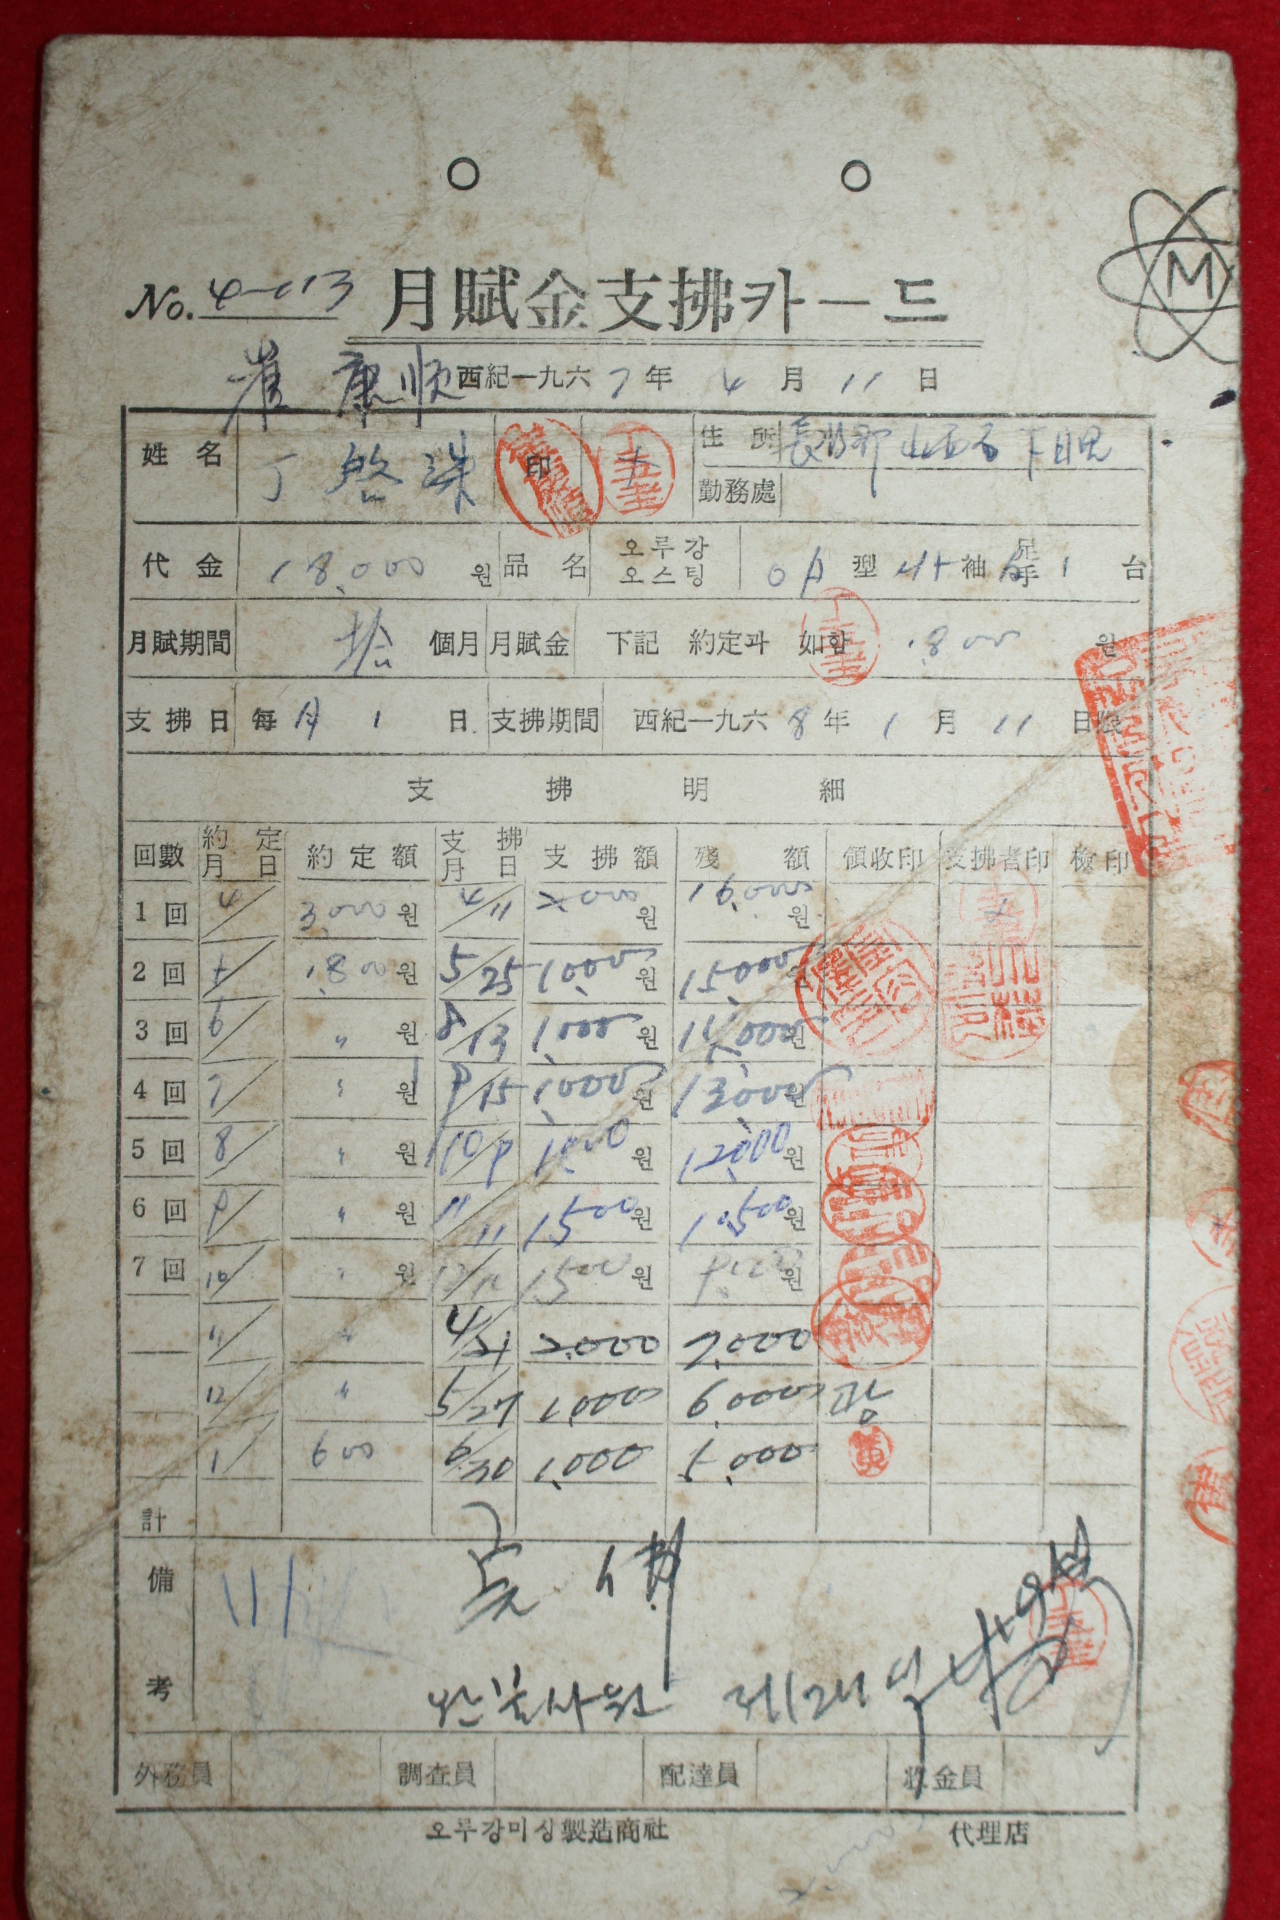 No. 4-113 月賦金支拂카ー드
M
崔 康順
西紀一九六7年 4月 11日
姓名 丁 啓 洙 印 住所 長
勤務處
代金 18,000원 品名 오루강 오스팅 型 袖 足手 1台
月賦期間 拾 個月 月賦金 下記 約定과 如함 1,800 원
支拂日 每月 1 日 支拂期間 西紀一九六8年 1月 11日限
支拂明細
回數 約定月日 約定額 支拂月日 支拂額 殘額 領收印 支拂者印 檢印
1回 4/ 3,000원 4/11 2,000원 16,000원
2回 5/ 1,800원 5/25 1,000원 15,000원
3回 6/ 〃 원 8/13 1,000원 14,000원
4回 7/ 〃 원 9/15 1,000원 13,000원
5回 8/ 〃 원 10/9 1,000원 12,000원
6回 9/ 〃 원 11/11 1500원 10,500원
7回 10/ 〃 원 12/11 1500원 9,000원
11/ 〃 4/21 2,000 7,000
12/ 〃 5/27 1,000 6,000
1/ 600 6/30 1,000 5,000
計
備考
外務員 調査員 配達員 收金員
오루강미싱製造商社 代理店